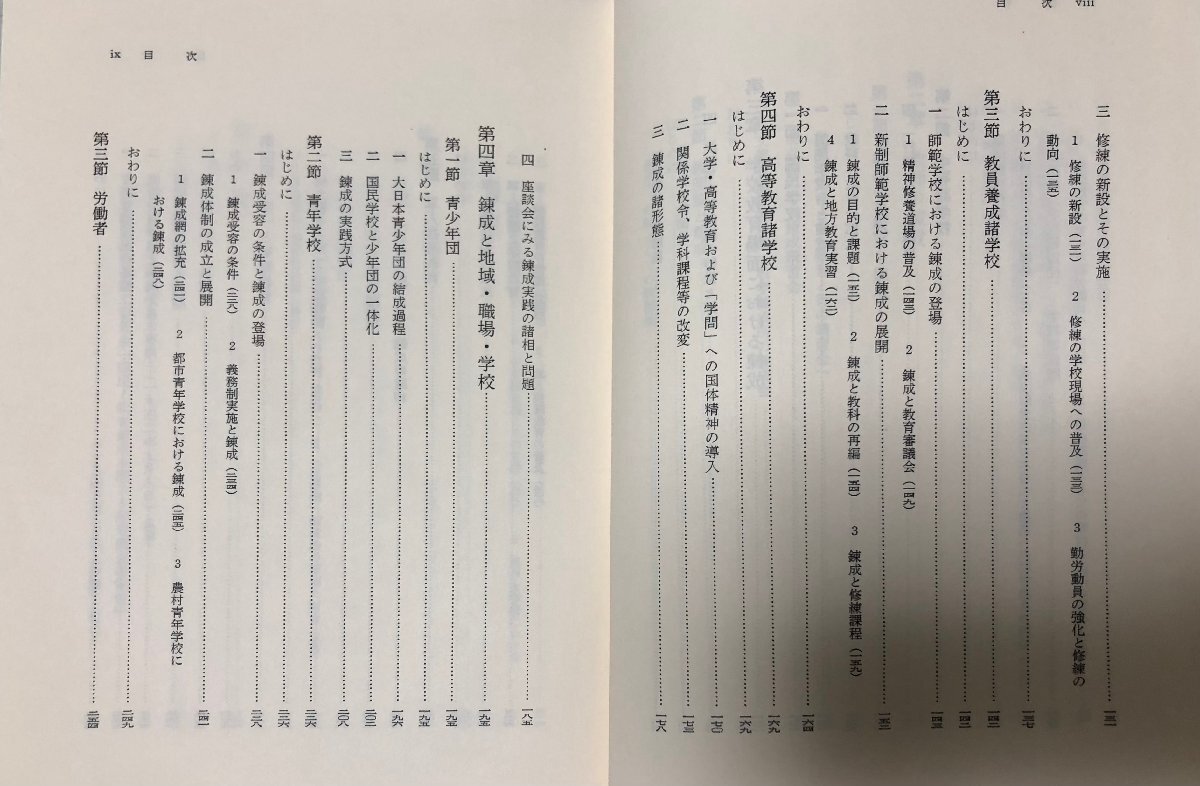 目　次　viii
三　修練の新設とその実施……一三一
1　修練の新設（一三一）　2　修練の学校現場への普及（一三三）　3　勤労動員の強化と修練の
動向（一三五）
おわりに……一三七
第三節　教員養成諸学校……一四二
はじめに……一四二
一　師範学校における錬成の登場……一四三
1　精神修養道場の普及（一四三）　2　錬成と教育審議会（一四九）
二　新制師範学校における錬成の展開……一五二
1　錬成の目的と課題（一五二）　2　錬成と教科の再編（一五四）　3　錬成と修練課程（一五九）
4　錬成と地方教育実習（一六二）
おわりに……一六四
第四節　高等教育諸学校……一六九
はじめに……一六九
一　大学・高等教育および「学問」への国体精神の導入……一七〇
二　関係学校令、学科課程等の改変……一七三
三　錬成の諸形態……一七八
ix　目　次
四　座談会にみる錬成実践の諸相と問題……一八五
第四章　錬成と地域・職場・学校……一九五
第一節　青少年団……一九五
はじめに……一九五
一　大日本青少年団の結成過程……一九六
二　国民学校と少年団の一体化……二〇三
三　錬成の実践方式……二〇八
第二節　青年学校……二二六
はじめに……二二六
一　錬成受容の条件と錬成の登場……二二八
1　錬成受容の条件（二二八）　2　義務制実施と錬成（二三四）
二　錬成体制の成立と展開……二四一
1　錬成網の拡充（二四一）　2　都市青年学校における錬成（二四五）　3　農村青年学校に
おける錬成（二四八）
おわりに……二四九
第三節　労働者……二五四